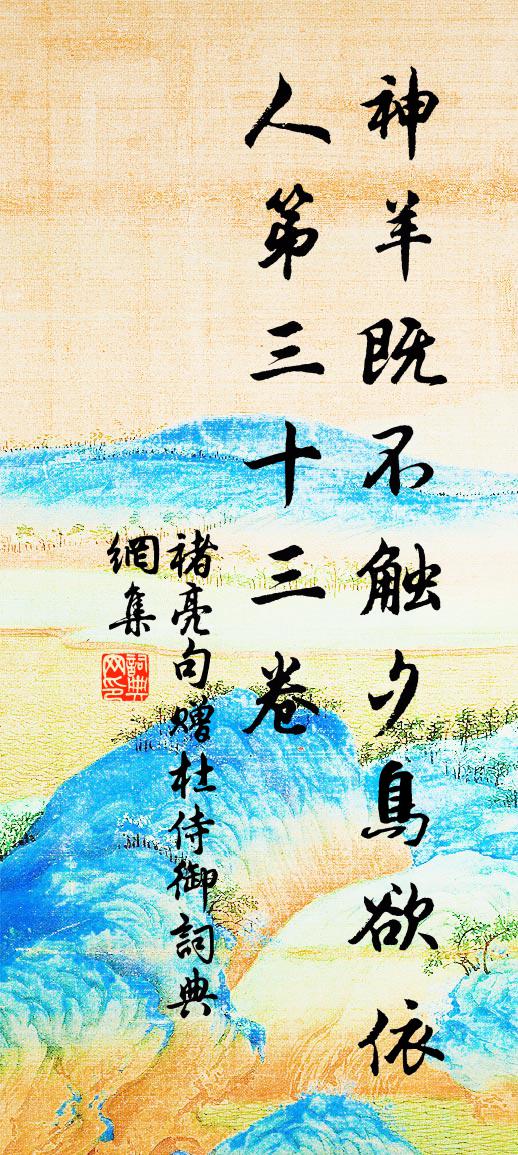 神羊既不触夕鳥欲依
人第三十三卷
褚亮句赠杜侍御詞典
網集
詞典
网印